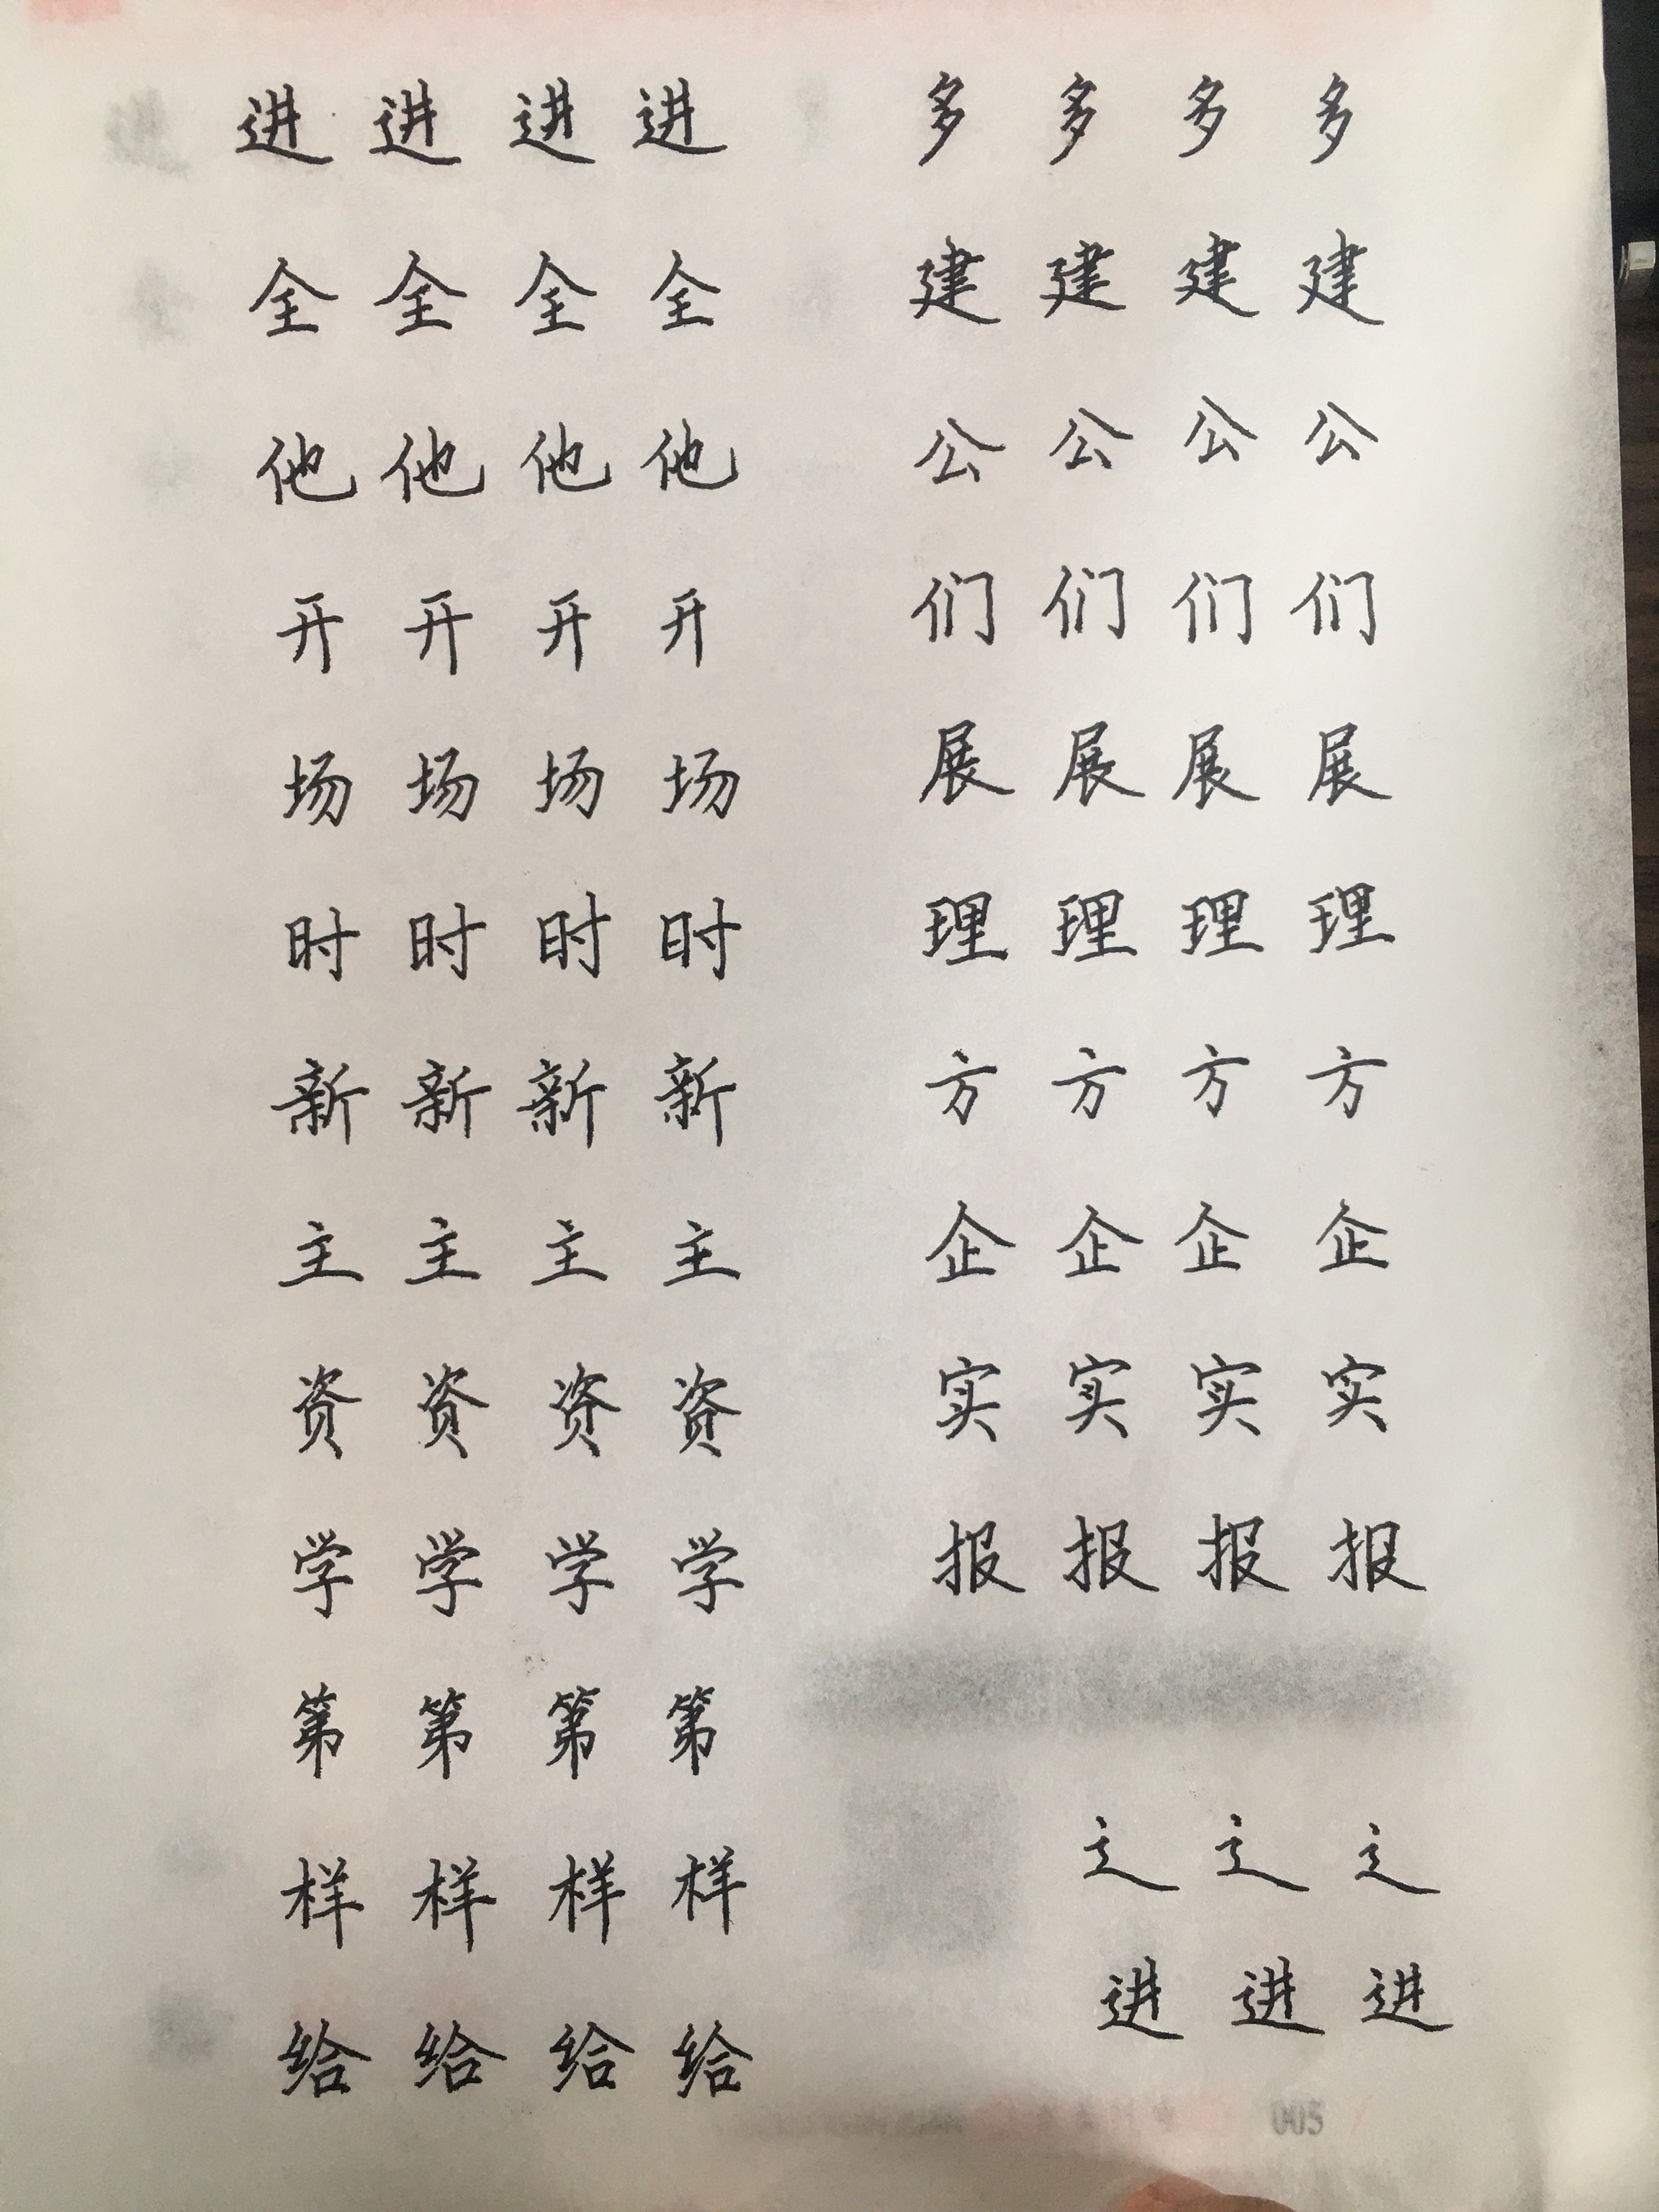 进 进 进 进 多 多 多 多
全 全 全 全 建 建 建 建
他 他 他 他 公 公 公 公
开 开 开 开 们 们 们 们
场 场 场 场 展 展 展 展
时 时 时 时 理 理 理 理
新 新 新 新 方 方 方 方
主 主 主 主 企 企 企 企
资 资 资 资 实 实 实 实
学 学 学 学 报 报 报 报
第 第 第 第
样 样 样 样 辶 辶 辶
给 给 给 给 进 进 进
005